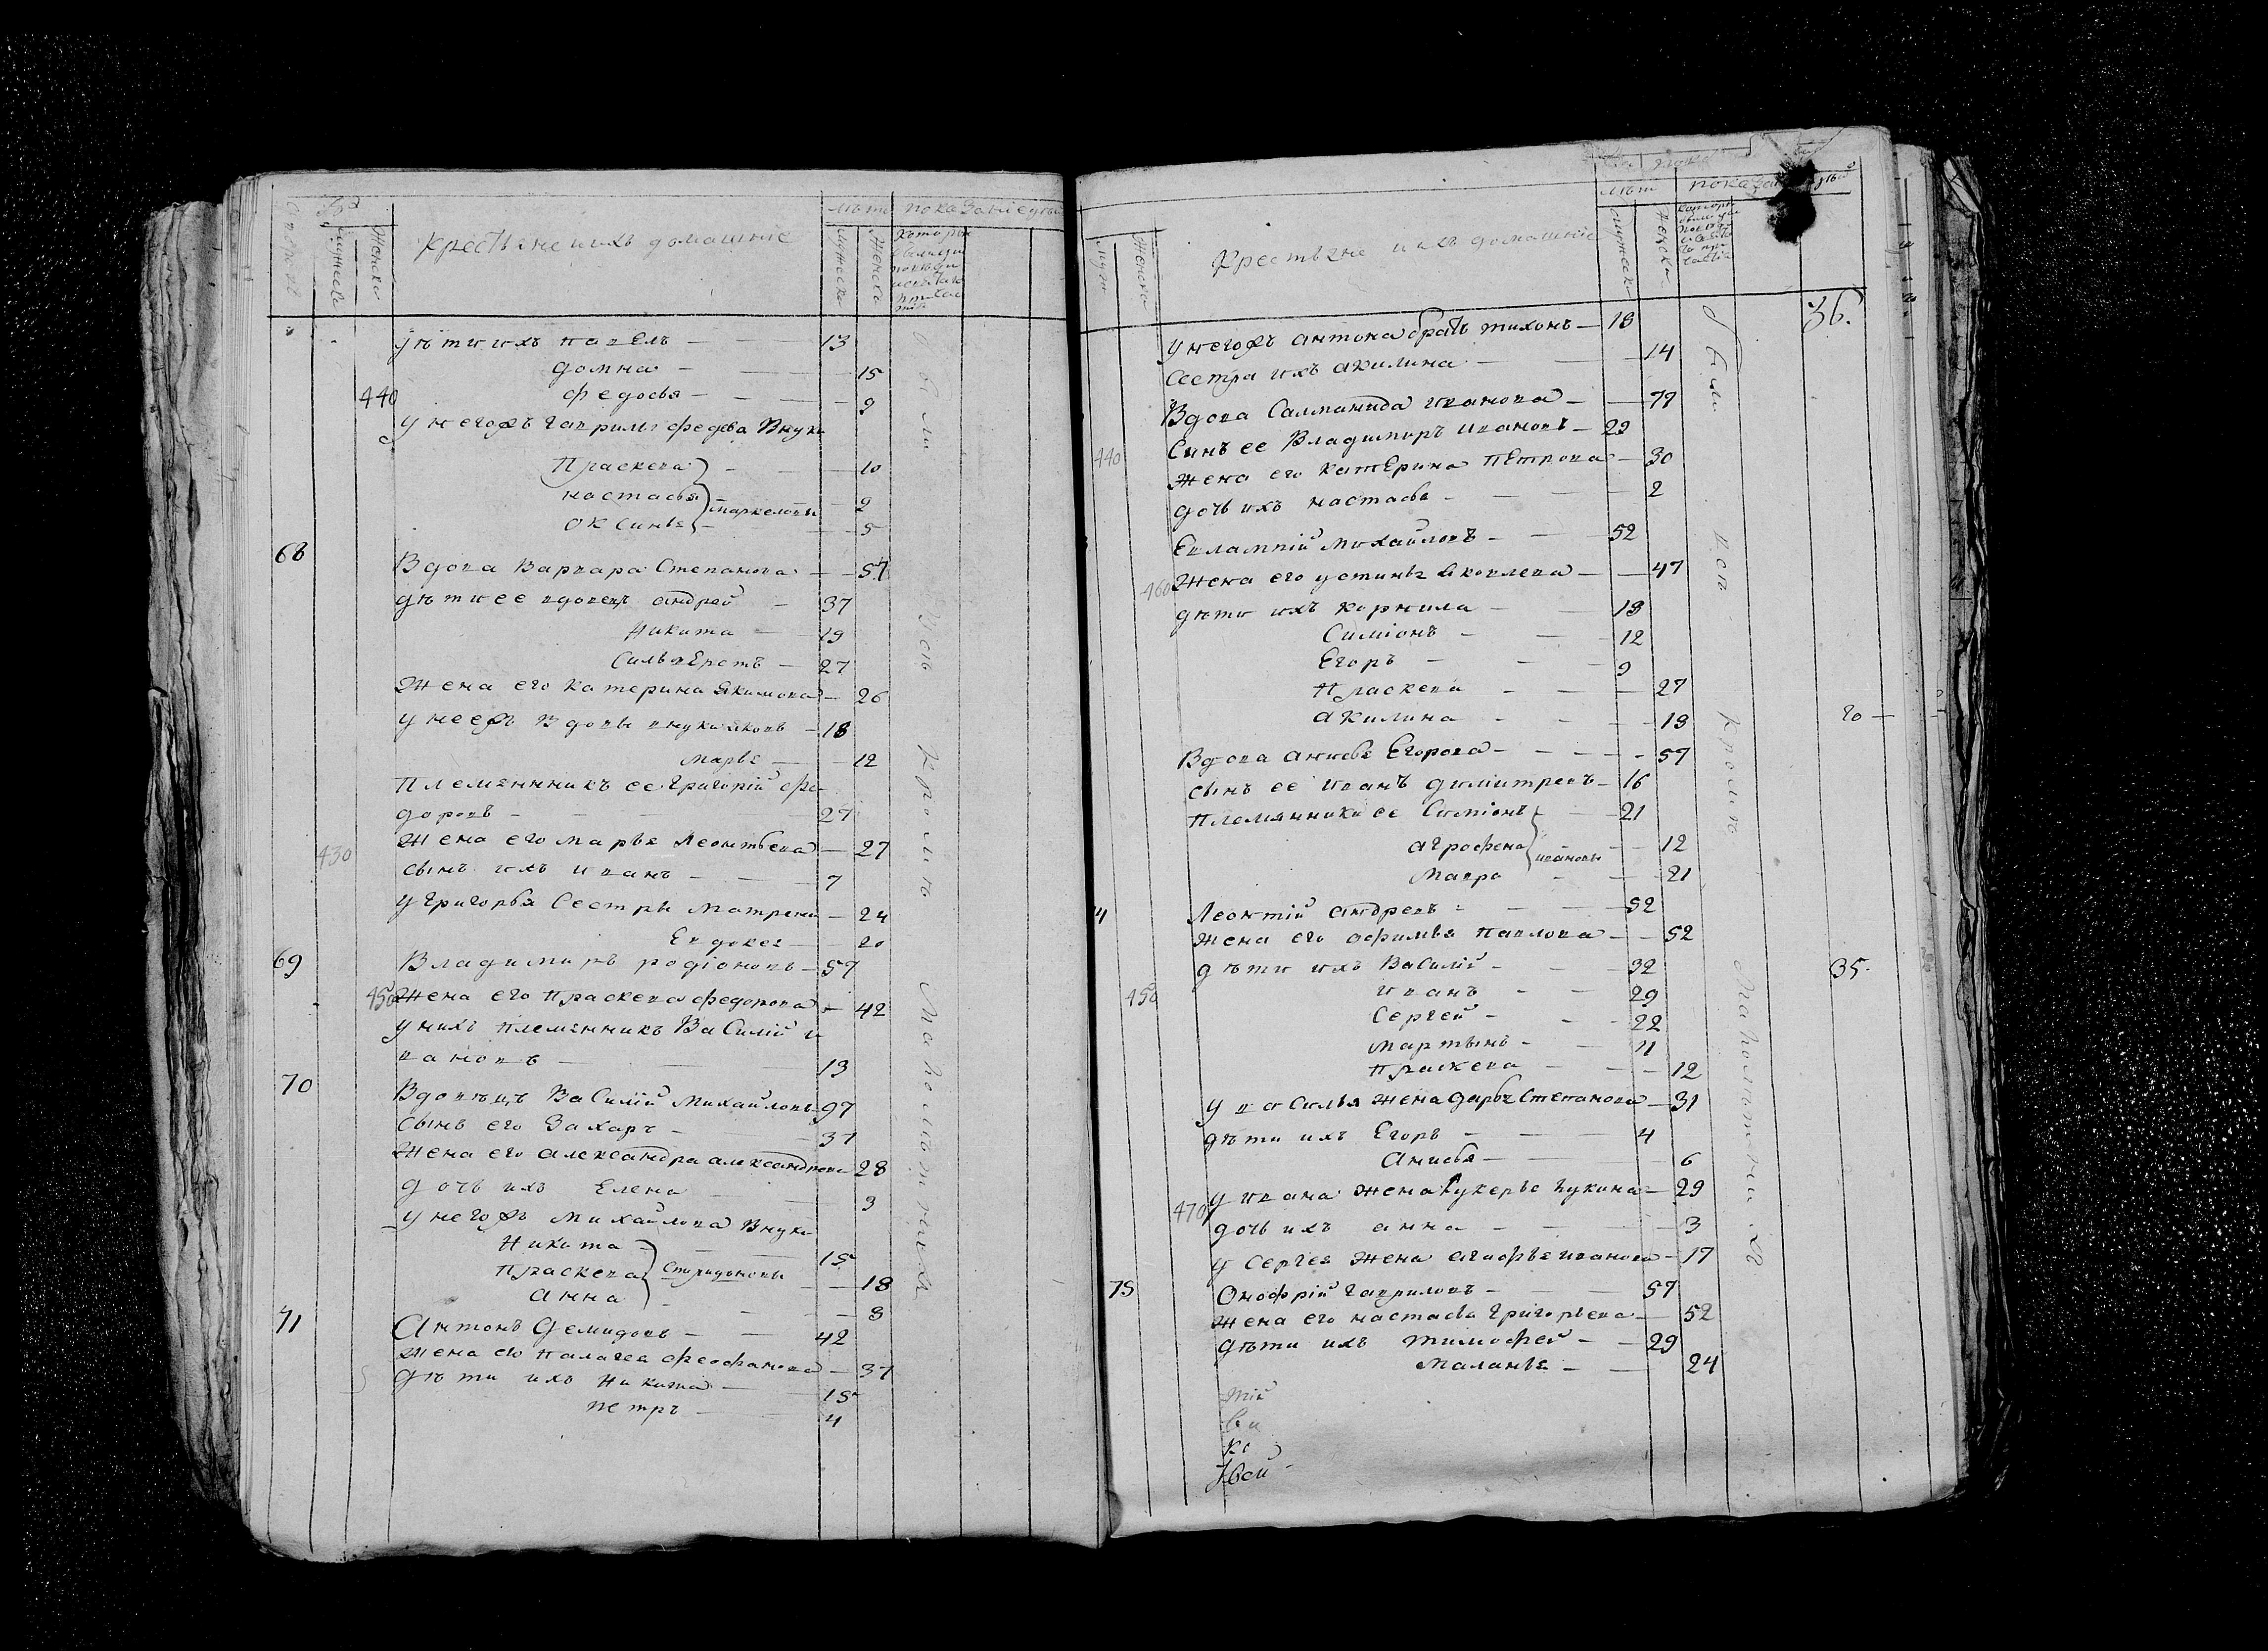 лѣтъ показаніе
Мужеска
Женска
крестьяне и ихъ домашніе
Мужеска
Женска
дѣти ихъ павелъ — 13
домна — 15
440 федосья — 9
у негожъ гаврилы федева внуки
Праскева — 10
настасья — 9
маркеловы
оксинья — 5
68 Вдова варвара Степанова — 57
дѣти ее вдовецъ андрей — 37
Никита — 19
Сильвестъ — 27
Жена его катерина якимова — 26
у неежъ вдовы внуки яковъ — 18
марья — 12
Племянникъ ее григорій фе-
доровъ — 27
430 Жена его марья Леонтьева — 27
сынъ ихъ иванъ — 7
у григорья сестры матрена — 24
Евдокея — 20
69 Владимиръ родіоновъ — 57
450 Жена его праскева федорова — 42
у нихъ племянникъ Василій и
вановъ — 13
70 Вдовецъ Василій михайловъ 97
сынъ его Захаръ — 37
Жена его александра александрова 28
дочь ихъ Елена — 3
у негожъ михайлова внуки
Никита — 15
Праскева — 18
Спиридоновы
анна — 8
71 Антонъ демидовъ — 42
Жена его палагея феофанова — 37
дѣти ихъ никита — 15
петръ — 4
были
всѣ
кромѣ
малолѣтнихъ
лѣтъ показаніе
Женска
Крестьяне и ихъ домашніе
Мужеска
Женска
36.
у негожъ антона братъ тихонъ — 18
Сестра ихъ акилина — 14
Вдова Саламанида иванова — 77
Сынъ ее Владимиръ ивановъ — 29
440 Жена его катерина петрова — 30
дочь ихъ настасья — 2
Евлампій михайловъ — 52
460 Жена его устинья яковлева — 47
дѣти ихъ корнила — 18
Симіонъ — 12
Егоръ — 9
Праскева — 27
акилина — 18
20 —
Вдова анисья Егорова — 57
сынъ ее иванъ димитревъ — 16
племянники ее Симіонъ — 21
аграфена — 12
ивановы
Мавра — 21
4 Леонтій андревъ — 52
жена его афимья павлова — 52
дѣти ихъ Василій — 32
35.
450 иванъ — 29
Сергей — 22
мартынъ — 11
праскева — 12
у василья жена дарья степанова — 31
дѣти ихъ Егоръ — 4
Анисья — 6
у ивана жена гукерья лукина — 29
470 дочь ихъ анна — 3
у сергея жена агафья иванова — 17
75 Онофрій гавриловъ — 57
жена его настасья григорьева — 52
дѣти ихъ тимофей — 29
маланья — 24
были
всѣ
кромѣ
малолѣтнихъ